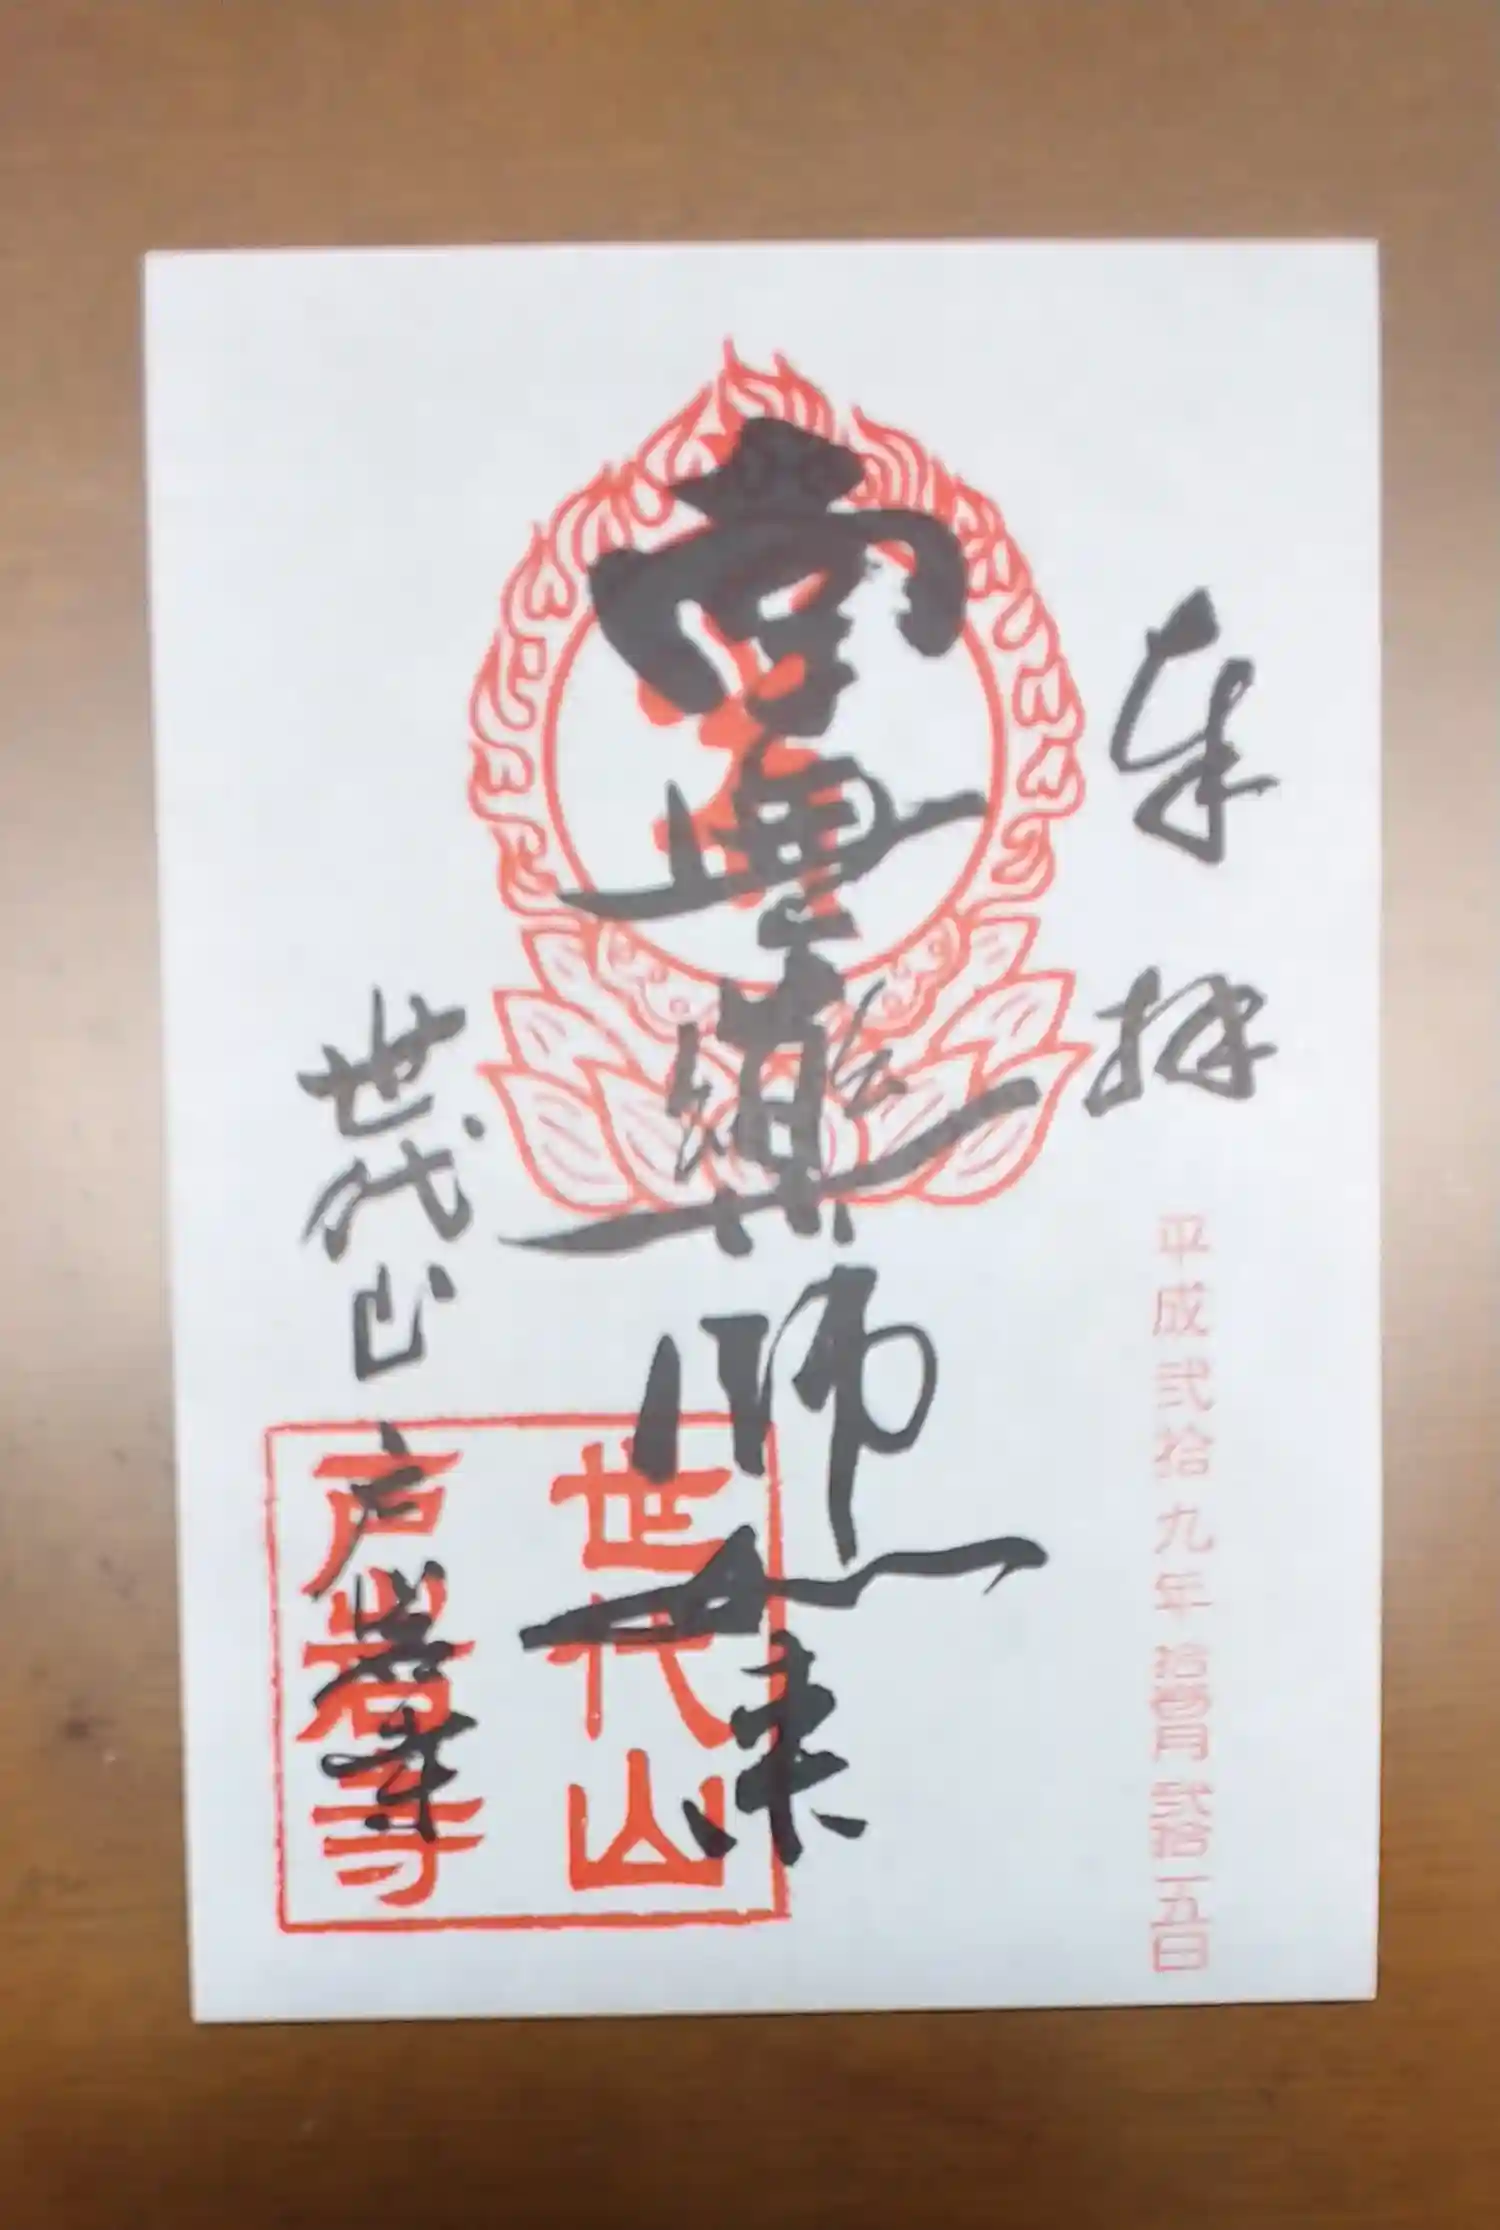 奉拝
平成弐拾九年拾月弐拾五日
薬師如来
世代山
戸岩寺
世代山
戸岩寺